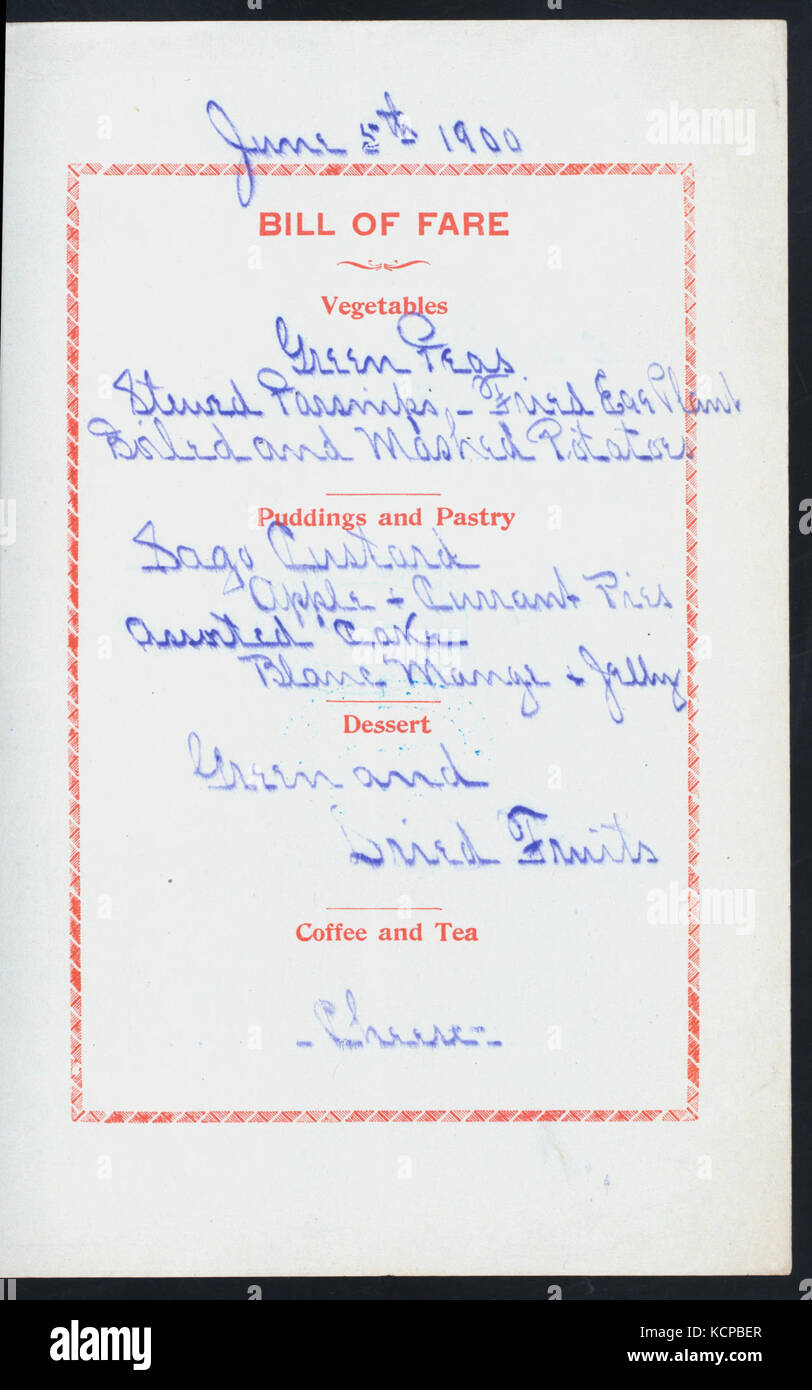 June 5th 1900
BILL OF FARE
Vegetables
Green Peas
Stewed Parsnips, - Fried Egg Plant
Boiled and Mashed Potatoes
Puddings and Pastry
Sago Custard
Apple & Currant Pies
Assorted Cake
Blanc Mange & Jelly
Dessert
Green and
Dried Fruits
Coffee and Tea
- Cheese -
alamy
alamy
a alamy
Image ID: KCPBER
www.alamy.com